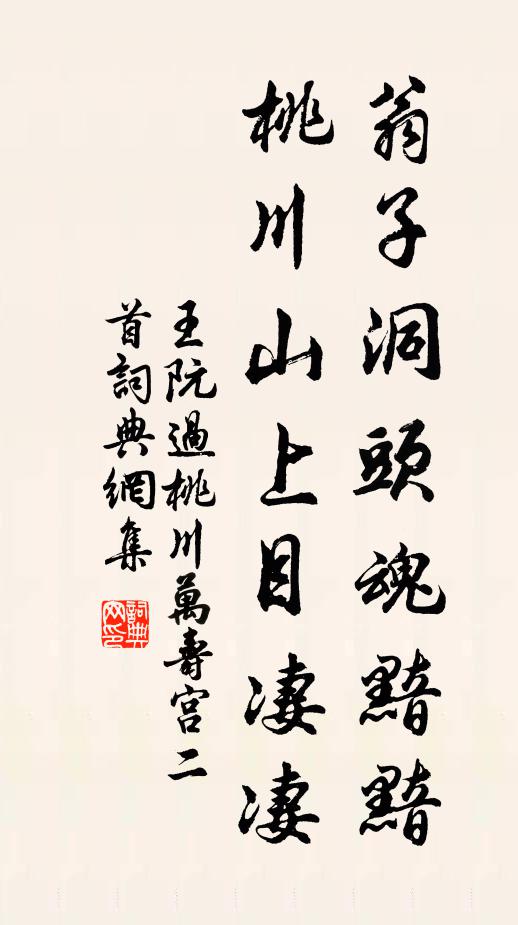 翁子洞頭魂黯黯
桃川山上目凄凄
王阮過桃川萬壽宮二
首詞典網集
詞典
网印